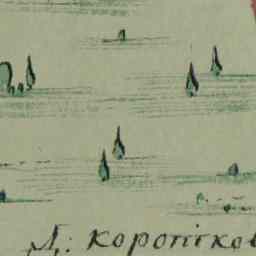 М: коропіков